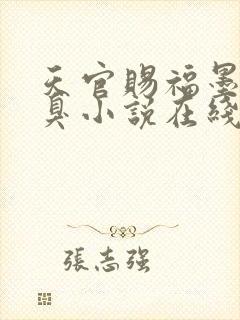 天官賜福墨
臭小說在綫
張志强